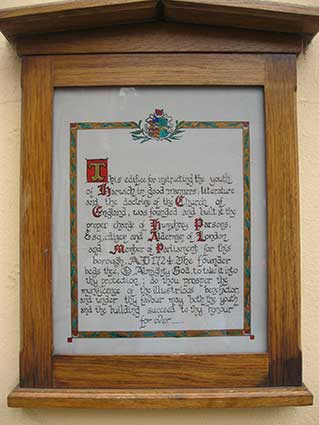 This edifice for instructing the youth
of Harwich in good manners, literature
and the doctrine of the Church of
England, was founded and built at the
proper charge of Humphry Parsons,
Esq., citizen and Alderman of London
and Member of Parliament for this
borough. A.D.1724. The founder
begs thee, O Almighty God, to take it into
thy protection; do thou prosper the
munificence of the illustrious benefactor,
and under thy favour may both the youth
and the building succeed to thy honour
for ever